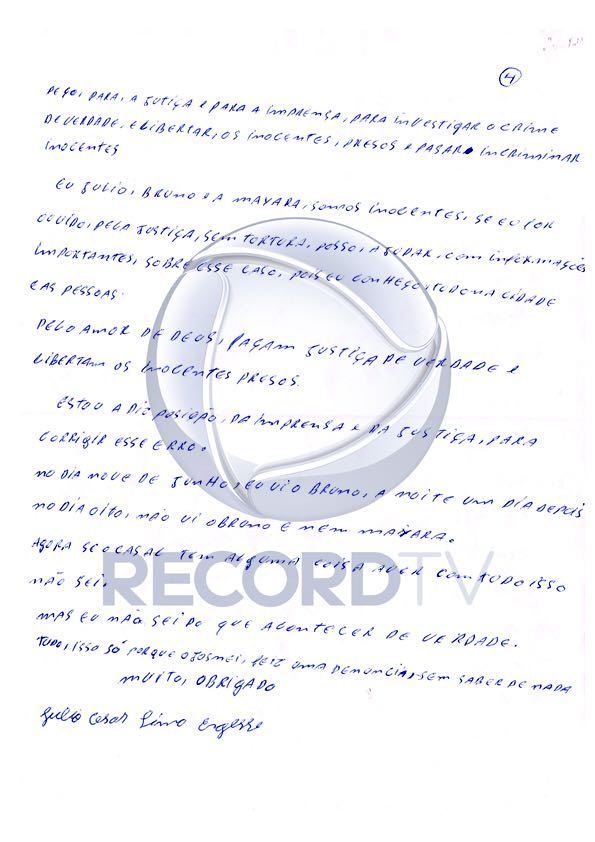 4
PEÇO, PARA, A JUTIÇA E PARA A IMPRENSA, PARA INVESTIGAR O CRIME
DE VERDADE, E LIBERTAR, OS INOCENTES, PRESOS E PARAR INCRIMINAR
INOCENTES
EU JULIO, BRUNO E A MAYARA, SOMOS INOCENTES, SE EU FOR
OUVIDO, PELA JUSTIÇA, SEM TORTURA, POSSO, AJUDAR, COM INFORMAÇÕES
IMPORTANTES, SOBRE ESSE CASO, POIS EU CONHEÇO, TUDO NA CIDADE
E AS PESSOAS.
PELO AMOR DE DEUS, FAÇAM JUSTIÇA DE VERDADE E
LIBERTAM OS INOCENTES PRESOS.
ESTOU A DIC POSIÇÃO, DA IMPRENSA E DA JUSTIÇA, PARA
CORRIGIR ESSE ERRO.
NO DIA NOVE DE JUNHO, EU VI O BRUNO, A NOITE UM DIA DEPOIS
NO DIA OITO, NÃO VI O BRUNO E NEM MAYARA.
AGORA SE O CASAL TEM ALGUMA COISA AVER COM TUDO ISSO
RECORDTV
NÃO SEI.
MAS EU NÃO SEI DO QUE ACONTECER DE VERDADE.
TUDO, ISSO SÓ PORQUE O JOSNEI, FEIZ UMA DENUNCIA, SEM SABER DE NADA
MUITO, OBRIGADO
Julio Cesar Lima